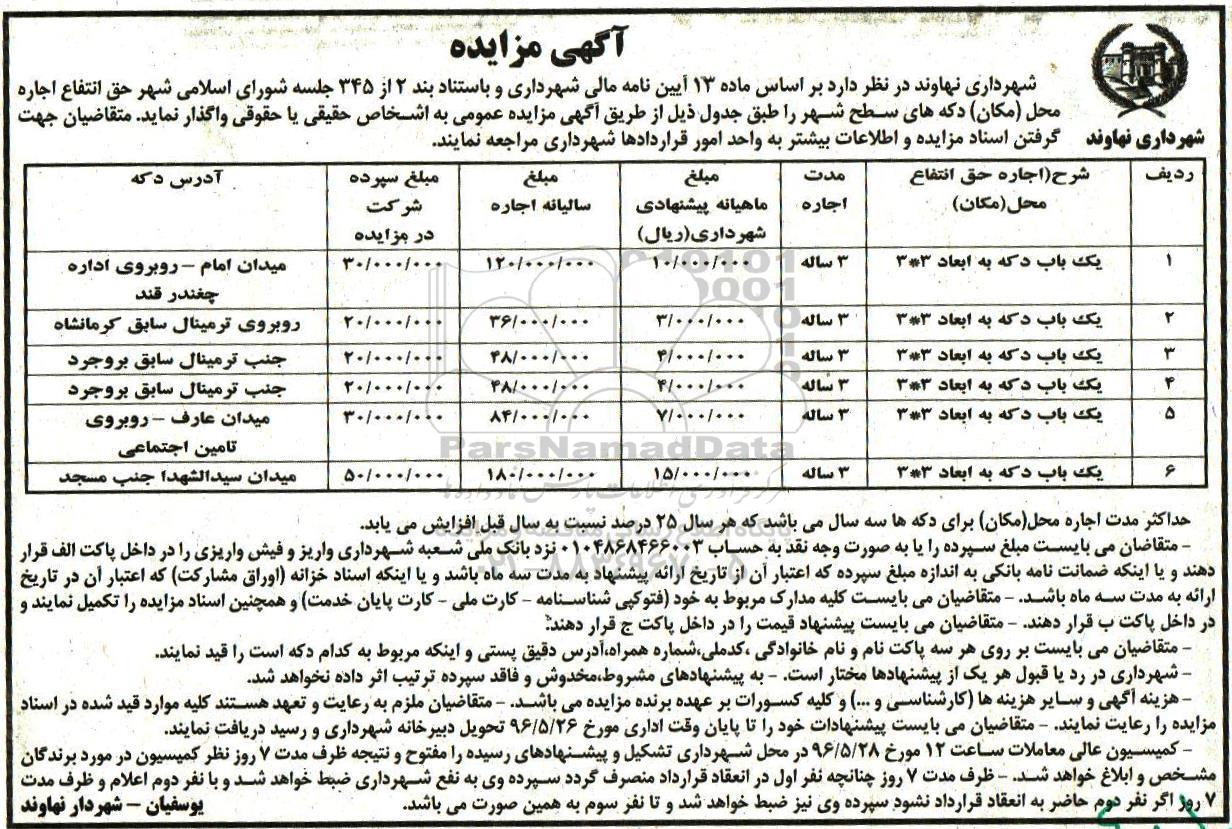 آگهی مزایده
شهرداری نهاوند
شهرداری نهاوند در نظر دارد بر اساس ماده ۱۳ آیین نامه مالی شهرداری و باستناد بند ۲ از ۳۴۵ جلسه شورای اسلامی شهر حق انتفاع اجاره
محل (مکان) دکه های سطح شهر را طبق جدول ذیل از طریق آگهی مزایده عمومی به اشخاص حقیقی یا حقوقی واگذار نماید. متقاضیان جهت
گرفتن اسناد مزایده و اطلاعات بیشتر به واحد امور قراردادها شهرداری مراجعه نمایند.
ردیف شرح(اجاره حق انتفاع محل(مکان) مدت اجاره مبلغ ماهیانه پیشنهادی شهرداری(ریال) مبلغ سالیانه اجاره مبلغ سپرده شرکت در مزایده آدرس دکه
۱ یک باب دکه به ابعاد ۳*۳ ۳ ساله ۱۰/۰۰۰/۰۰۰ ۱۲۰/۰۰۰/۰۰۰ ۳۰/۰۰۰/۰۰۰ میدان امام – روبروی اداره
چغندر قند
۲ یک باب دکه به ابعاد ۳*۳ ۳ ساله ۳/۰۰۰/۰۰۰ ۳۶/۰۰۰/۰۰۰ ۲۰/۰۰۰/۰۰۰ روبروی ترمینال سابق کرمانشاه
۳ یک باب دکه به ابعاد ۳*۳ ۳ ساله ۴/۰۰۰/۰۰۰ ۴۸/۰۰۰/۰۰۰ ۲۰/۰۰۰/۰۰۰ جنب ترمینال سابق بروجرد
۴ یک باب دکه به ابعاد ۳*۳ ۳ ساله ۴/۰۰۰/۰۰۰ ۴۸/۰۰۰/۰۰۰ ۲۰/۰۰۰/۰۰۰ جنب ترمینال سابق بروجرد
۵ یک باب دکه به ابعاد ۳*۳ ۳ ساله ۷/۰۰۰/۰۰۰ ۸۴/۰۰۰/۰۰۰ ۳۰/۰۰۰/۰۰۰ میدان عارف – روبروی
تامین اجتماعی
۶ یک باب دکه به ابعاد ۳*۳ ۳ ساله ۱۵/۰۰۰/۰۰۰ ۱۸۰/۰۰۰/۰۰۰ ۵۰/۰۰۰/۰۰۰ میدان سیدالشهدا جنب مسجد
ParsNamadData
حداکثر مدت اجاره محل(مکان) برای دکه ها سه سال می باشد که هر سال ۲۵ درصد نسبت به سال قبل افزایش می یابد.
– متقاضان می بایست مبلغ سپرده را یا به صورت وجه نقد به حساب ۰۱۰۴۸۶۸۴۶۶۰۰۳ نزد بانک ملی شعبه شهرداری واریز و فیش واریزی را در داخل پاکت الف قرار
دهند و یا اینکه ضمانت نامه بانکی به اندازه مبلغ سپرده که اعتبار آن از تاریخ ارائه پیشنهاد به مدت سه ماه باشد و یا اینکه اسناد خزانه (اوراق مشارکت) که اعتبار آن در تاریخ
ارائه به مدت سه ماه باشد. – متقاضیان می بایست کلیه مدارک مربوط به خود (فتوکپی شناسنامه – کارت ملی – کارت پایان خدمت) و همچنین اسناد مزایده را تکمیل نمایند و
در داخل پاکت ب قرار دهند. – متقاضیان می بایست پیشنهاد قیمت را در داخل پاکت ج قرار دهند.
– متقاضیان می بایست بر روی هر سه پاکت نام و نام خانوادگی ،کدملی،شماره همراه،آدرس دقیق پستی و اینکه مربوط به کدام دکه است را قید نمایند.
– شهرداری در رد یا قبول هر یک از پیشنهادها مختار است. – به پیشنهادهای مشروط،مخدوش و فاقد سپرده ترتیب اثر داده نخواهد شد.
– هزینه آگهی و سایر هزینه ها (کارشناسی و ...) و کلیه کسورات بر عهده برنده مزایده می باشد. – متقاضیان ملزم به رعایت و تعهد هستند کلیه موارد قید شده در اسناد
مزایده را رعایت نمایند. – متقاضیان می بایست پیشنهادات خود را تا پایان وقت اداری مورخ ۹۶/۵/۲۶ تحویل دبیرخانه شهرداری و رسید دریافت نمایند.
– کمیسیون عالی معاملات ساعت ۱۲ مورخ ۹۶/۵/۲۸ در محل شهرداری تشکیل و پیشنهادهای رسیده را مفتوح و نتیجه ظرف مدت ۷ روز نظر کمیسیون در مورد برندگان
مشخص و ابلاغ خواهد شد. – ظرف مدت ۷ روز چنانچه نفر اول در انعقاد قرارداد منصرف گردد سپرده وی به نفع شهرداری ضبط خواهد شد و با نفر دوم اعلام و ظرف مدت
۷ روز اگر نفر دوم حاضر به انعقاد قرارداد نشود سپرده وی نیز ضبط خواهد شد و تا نفر سوم به همین صورت می باشد.
یوسفیان – شهردار نهاوند